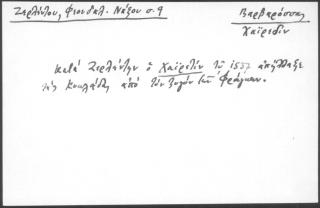 Ζερλέντου, Φεουδαλ. Νάξου σ. 9
Βαρβαρόσσας
Χαϊρεδίν
κατά Ζερλέντην ο Χαϊρεδίν τω 1537 απήλλαξε
τας Κυκλάδας από τον ζυγόν των Φράγκων.